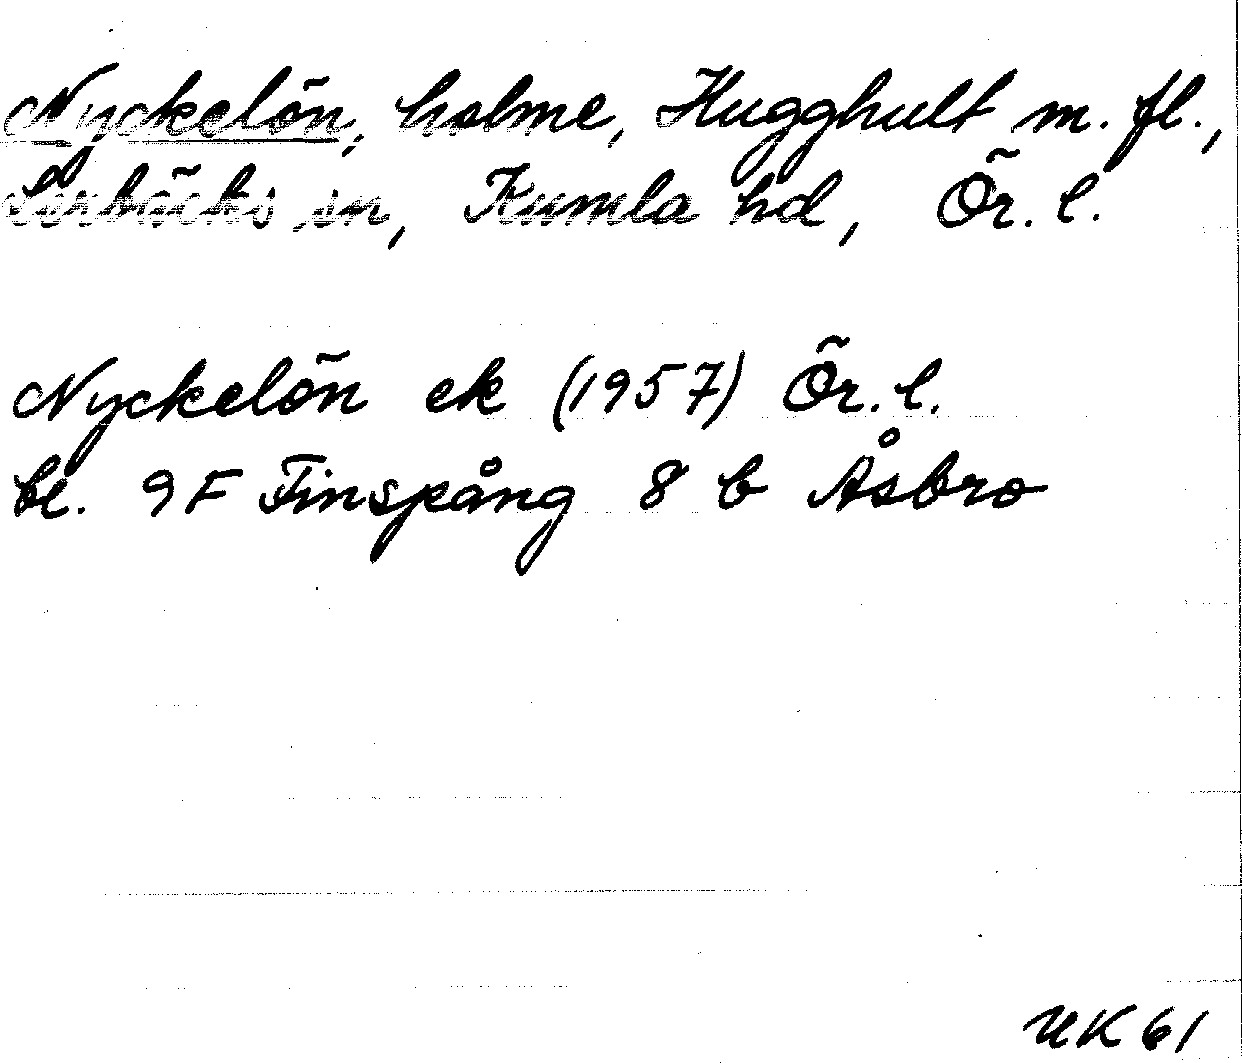 Nyckelön, holme, Hugghult m. fl.,
Lerbäcks sn, Kumla hd, Ör. l.
Nyckelön ek (1957) Ör. l.
bl. 9F Finspång 8 b Åsbro
UK 61